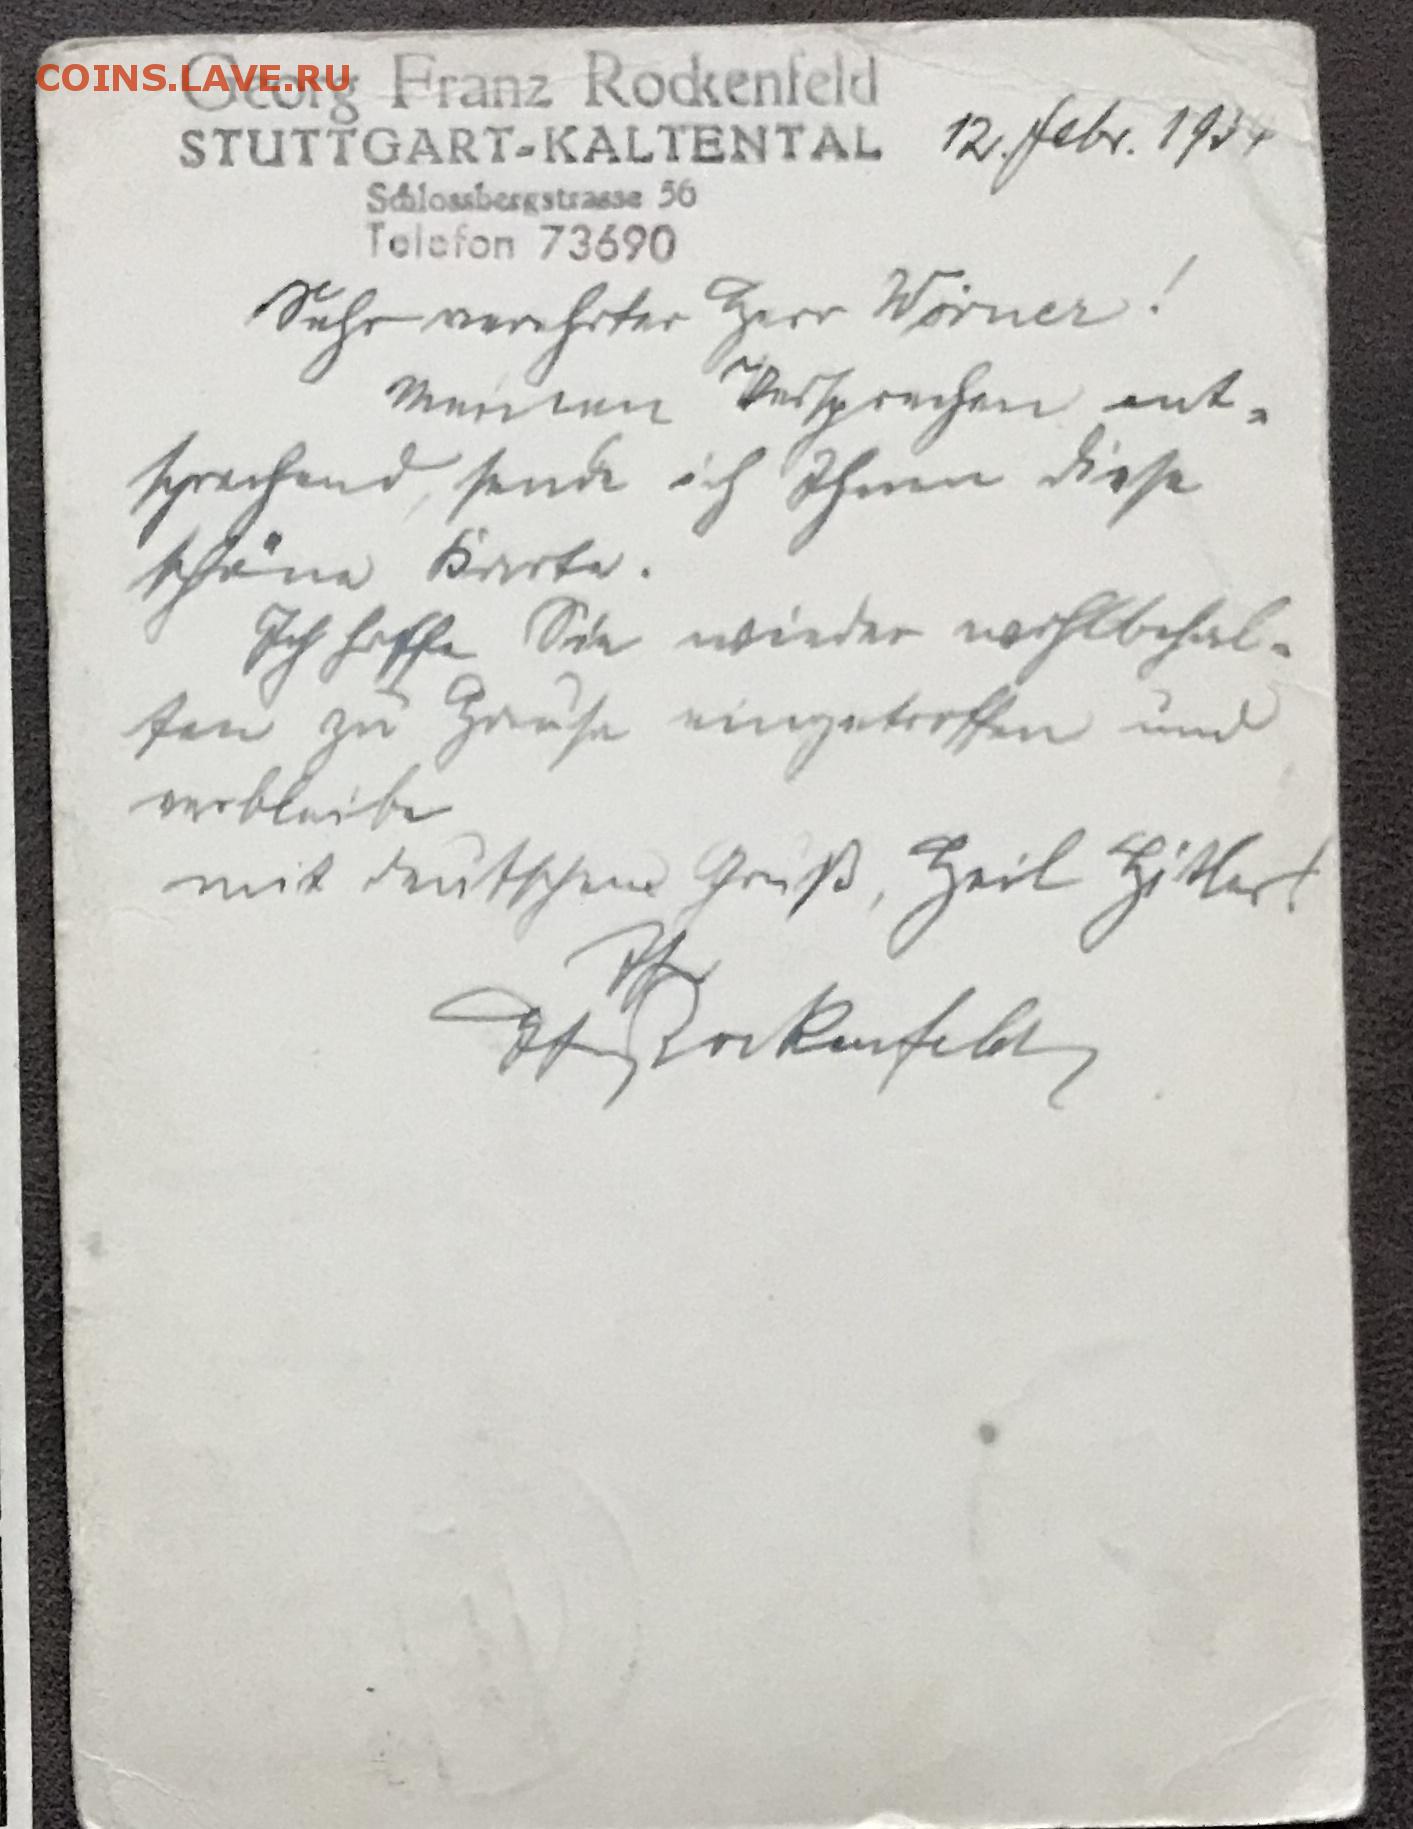 COINS.LAVE.RU
Georg Franz Rockenfeld
STUTTGART-KALTENTAL
12. Febr. 193
Schlossbergstrasse 56
Telefon 73690
Sehr verehrter Herr Wörner!
Meinen Versprechen ent-
sprechend, sende ich Ihnen diese
schöne Karte.
Ich hoffe Sie wieder wohlbehal-
ten zu Hause eingetroffen und
verbleibe
mit deutschem Gruß, Heil Hitler!
Rockenfeld